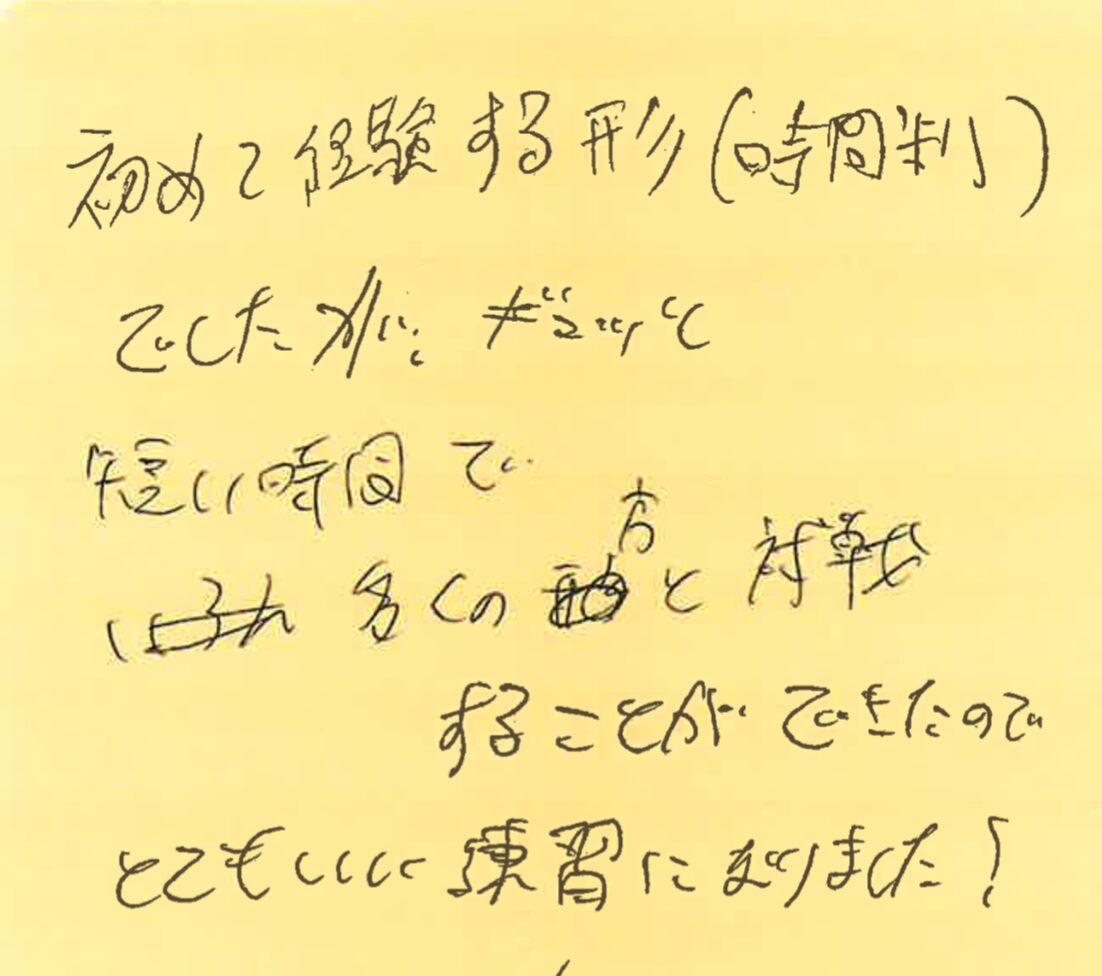 初めて経験する形(時間制)
でしたが、ギュッと
短い時間で
多くの方と対戦
することができたので
とてもいい練習になりました!